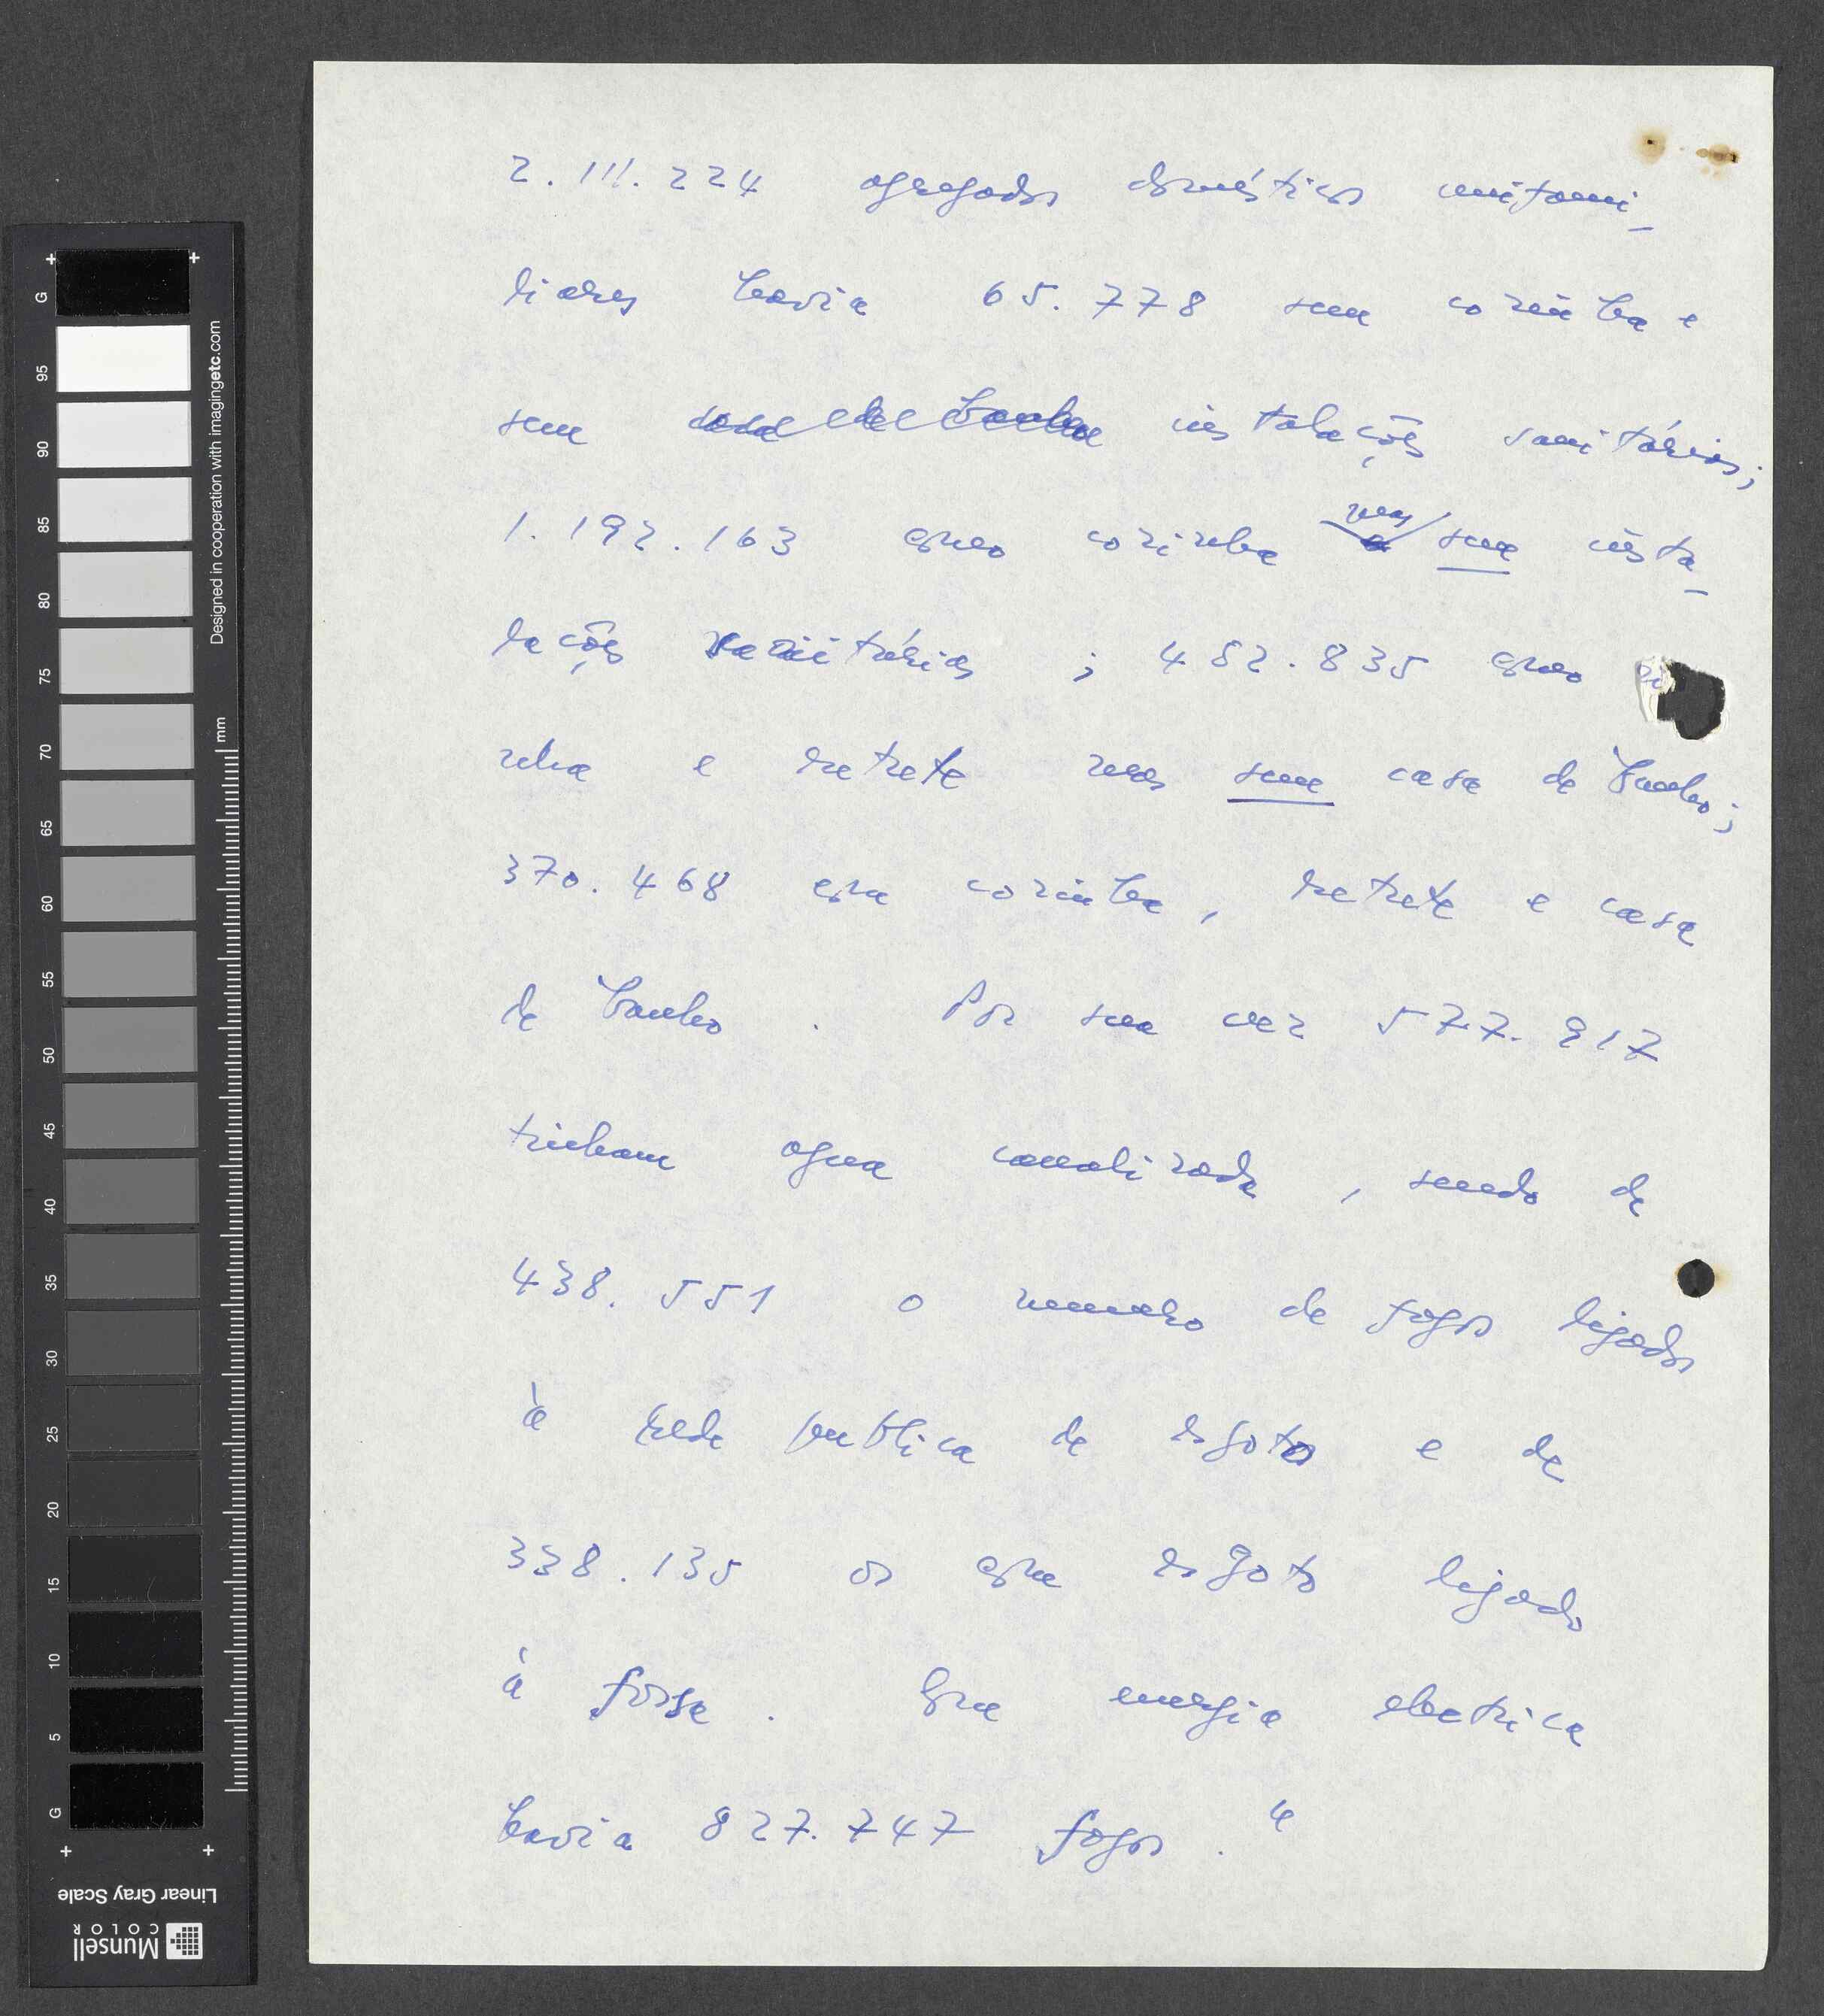 2.111.224 agregados domésticos unifami-
liares havia 65.778 sem cozinha e
sem casa de banho instalações sanitárias;
1.192.163 com cozinha mas sem insta-
lações sanitárias ; 482.835 com
nha e retrete mas sem casa de banho;
370.468 com cozinha, retrete e casa
de banho . Por sua vez 577.917
tinham agua canalizada , sendo de
438.551 o numero de fogos ligados
à rede publica de esgotos e de
338.135 os com esgoto ligado
à fossa . Com energia electrica
havia 827.747 fogos . "
G
95
90
85
80
75
70
65
60
55
50
45
40
35
30
25
20
15
10
5
G
Designed in cooperation with imagingetc.com
mm
Linear Gray Scale
Munsell
COLOR